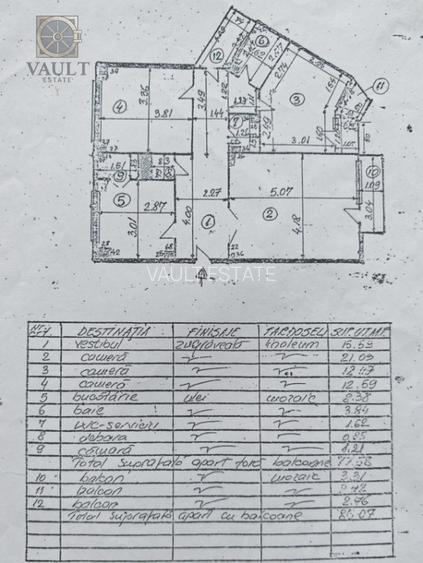 VAULT
ESTATE
12
6
3
11
4
3.36
3.81
3.49
1.44
2.49
3.01
7
9
1.51
5
2.87
3.01
4.00
2.27
1
2
5.07
4.18
10
1.09
3.04
VAULT ESTATE
DESTINAȚIA FINISAJE
1 vestibul zugrăveală linoleum 15.53
2 cameră 21.09
3 cameră
4 cameră 12.59
5 bucătărie ulei mozaic 8.38
6 baie 3.84
7 WC-serviciu 1.62
8 debara
9 cămară 1.21
Total suprafață apart fără balcoane 77.58
10 balcon mozaic 3.31
11 balcon
12 balcon 2.76
Total suprafață apart cu balcoane